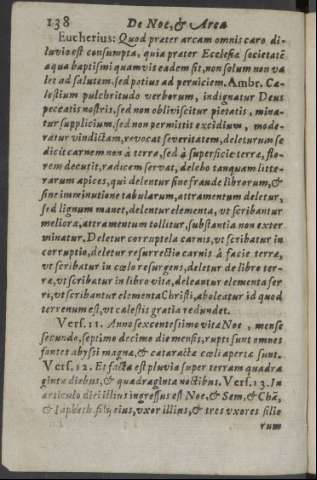 138 De Noe, & Arca
Eucherius: Quod præter arcam omnis caro di-
luvio est consumpta, quia præter Ecclesiæ societatē
aqua baptismi quamvis eadem sit, non solum non va
let ad salutem, sed potius ad perniciem. Ambr. Cæ-
lestium pulchritudo verborum, indignatur Deus
peccatis nostris, sed non obliviscitur pietatis, mina-
tur supplicium, sed non permittit excidium, mode-
ratur vindictam, revocat severitatem, deleturum se
dicit carnem non à terra, sed à superficie terræ, flo-
rem decutit, radicem servat, delebo tanquam litte-
rarum apices, qui delentur sine fraude librorum, &
sine imminutione tabularum, attramentum deletur,
sed lignum manet, delentur elementa, vt scribantur
meliora, attramentum tollitur, substantia non exter
minatur. Deletur corruptela carnis, vt scribatur in
corruptio, deletur resurrectio carnis à facie terræ,
vt scribatur in cœlo resurgens, deletur de libro ter-
ræ, vt scribatur in libro vitæ, deleantur elementa ser
ri, vt scribantur elementa Christi, aboleatur id quod
terrenum est, vt cælestis gratia redundet.
Vers. 11. Anno sexcentesimo vitæ Noe, mense
secundo, septimo decimo die mensis, rupti sunt omnes
fontes abyssi magnæ, & cataractæ cœli apertæ sunt.
Vers. 12. Et facta est pluvia super terram quadra
ginta diebus, & quadraginta noctibus. Vers. 13. In
articulo diei illius ingressus est Noe, & Sem, & Chā,
& Iapheth filij eius, vxor illius, & tres vxores filio
rum